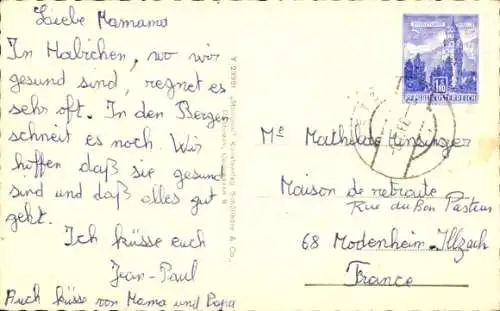 Liebe Mamama
In Habichen, wo wir
gesund sind, regnet es
sehr oft. In den Bergen
schneit es noch. Wir
hoffen daß sie gesund
sind und daß alles gut
geht.
Ich küsse euch
Jean-Paul
Auch küsse von Mama und Papa
REPUBLIK ÖSTERREICH
Me Mathilde
Maison de retraite
Rue du Bon Pasteur
68 Modenheim-Illzach
France